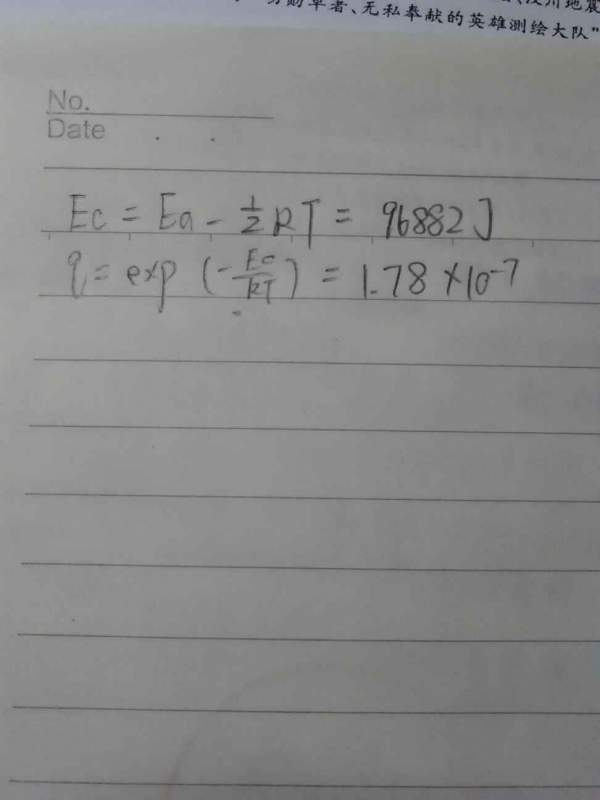 汶川地震
功勋卓著、无私奉献的英雄测绘大队”
No.
Date
Ec = Ea - 1/2 RT = 96882 J
q = exp (-Ec/RT) = 1.78 × 10⁻⁷